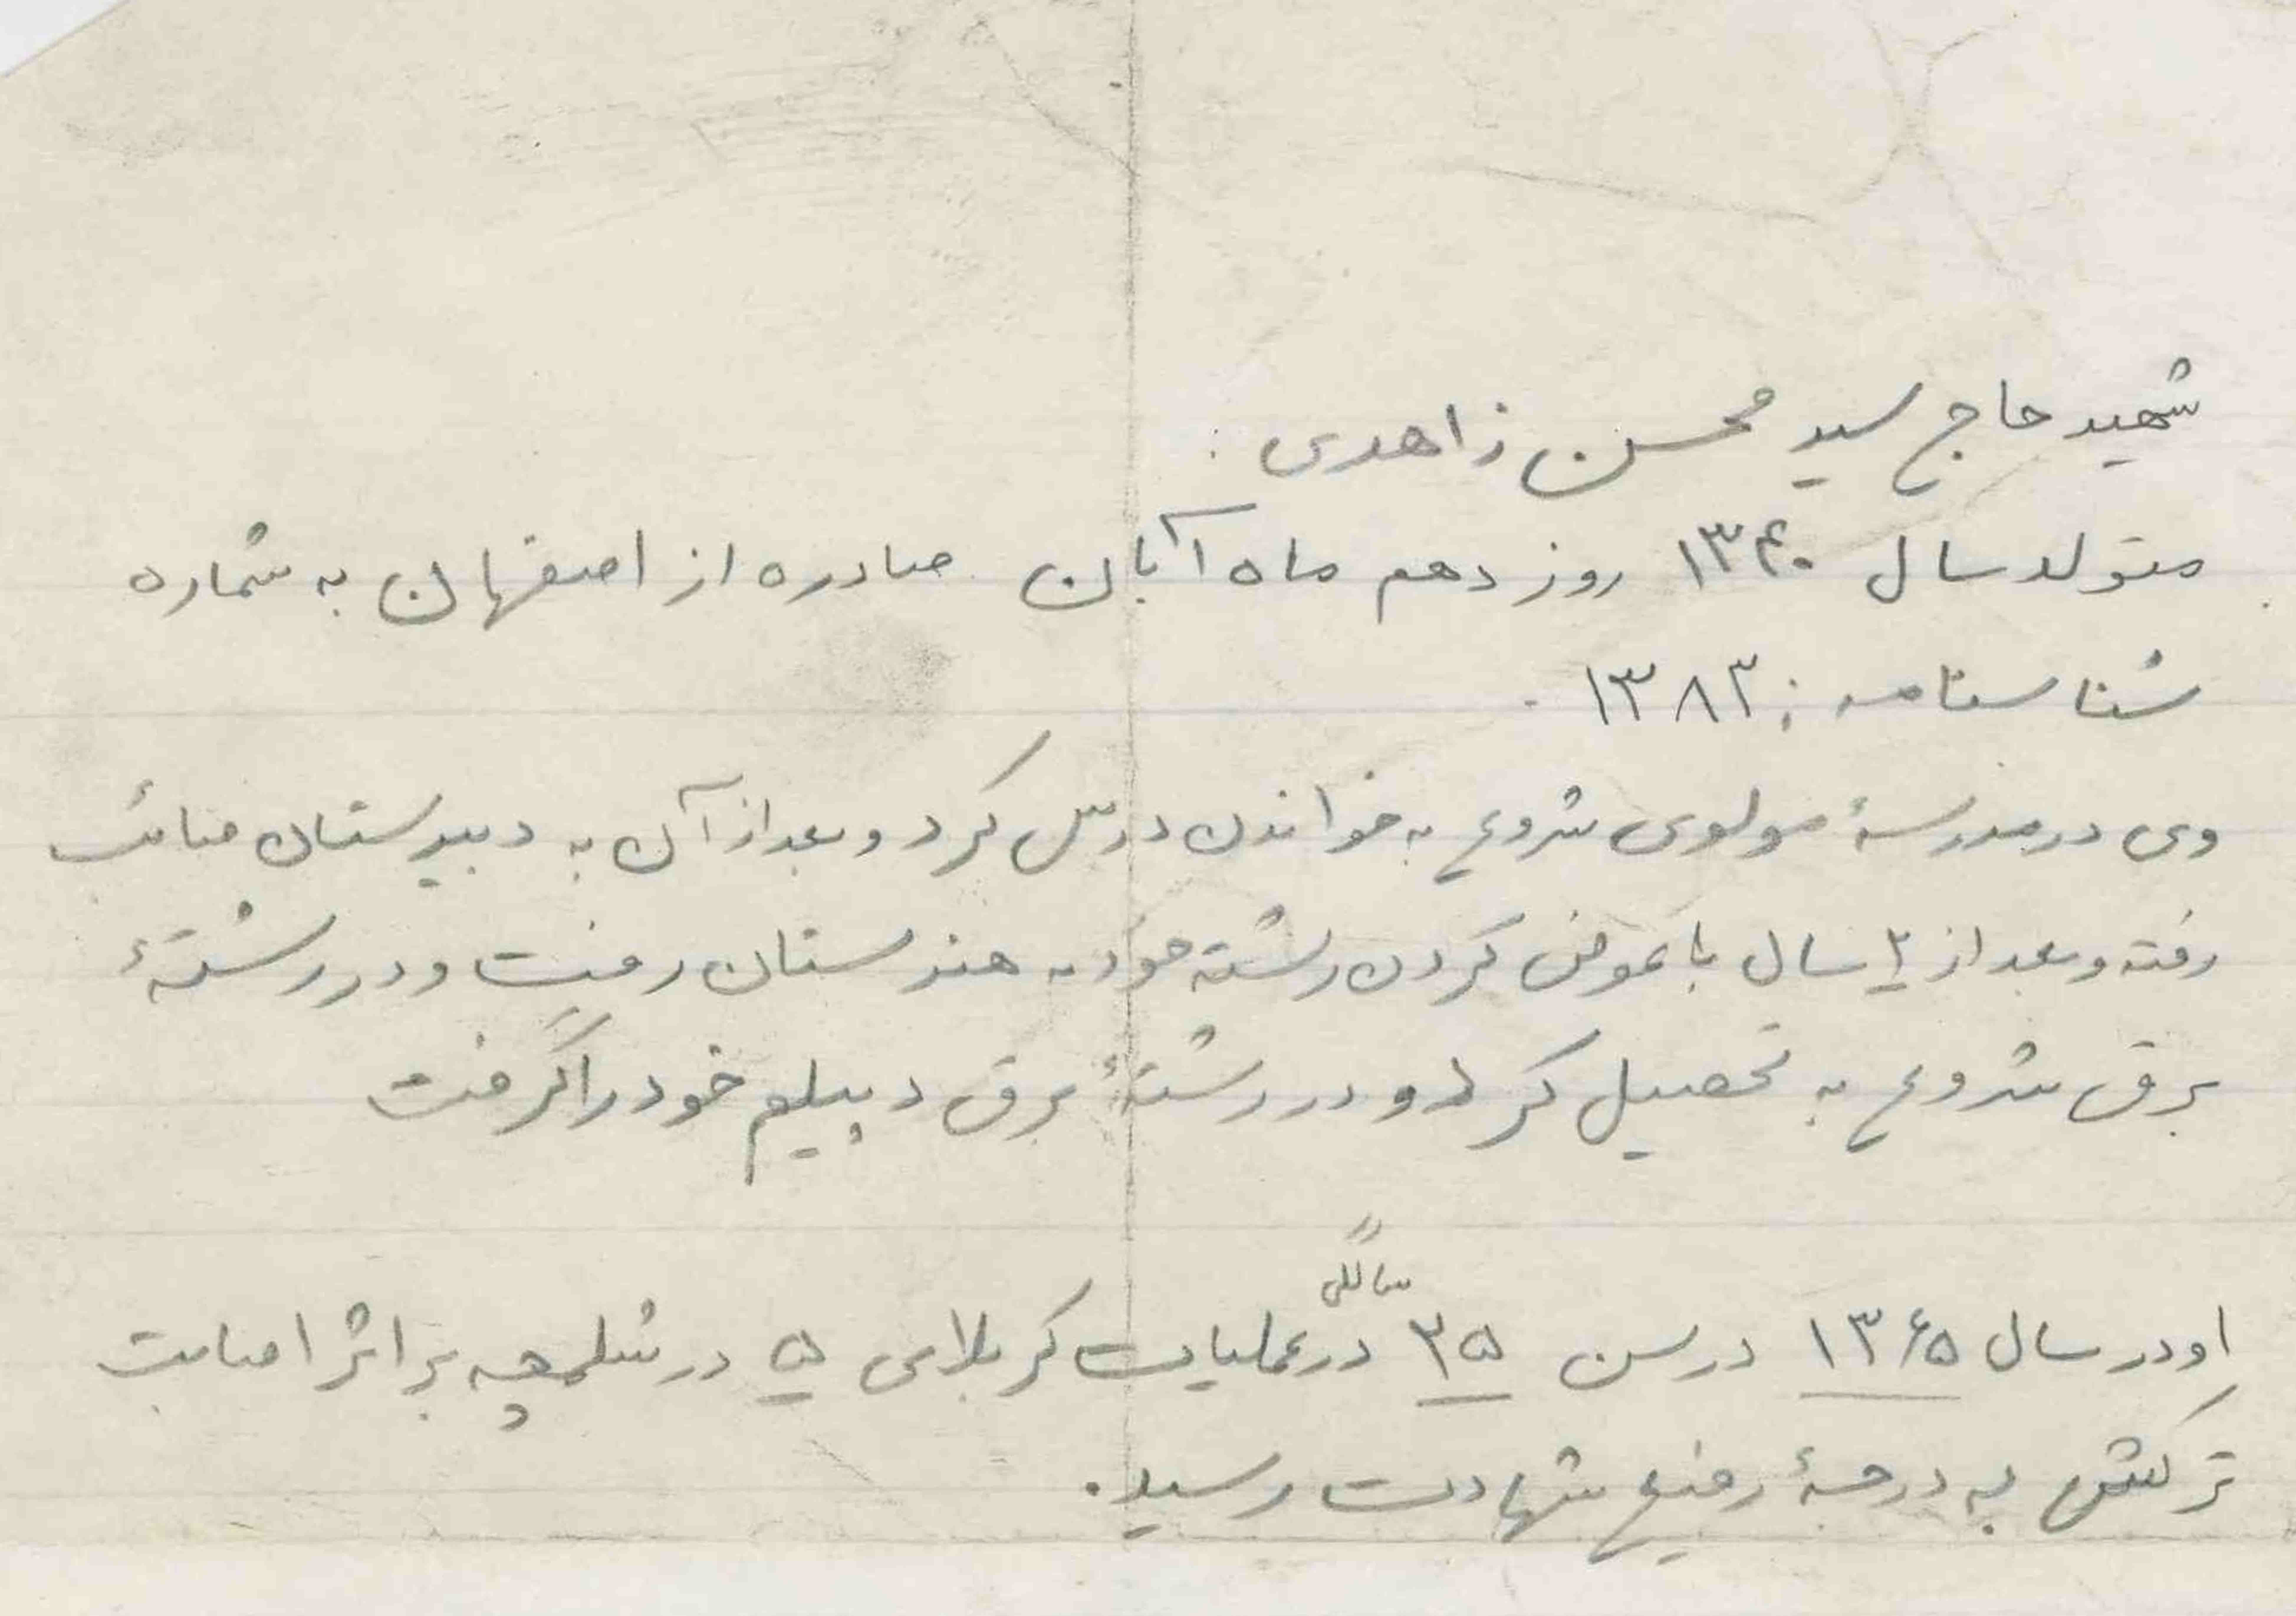 شهید حاج سید محسن زاهدی :
متولد سال ۱۳۴۰ روز دهم ماه آبان صادره از اصفهان به شماره
شناسنامه : ۱۳۸۲ .
وی در مدرسهٔ مولوی شروع به خواندن درس کرد و بعد از آن به دبیرستان صائب
رفته و بعد از ۲ سال با عوض کردن رشته خود به هنرستان رفت و در رشتهٔ
برق شروع به تحصیل کرد و در رشتهٔ برق دیپلم خود را گرفت
سالگی
او در سال ۱۳۶۵ در سن ۲۵ در عملیات کربلای ۵ در شلمچه بر اثر اصابت
ترکش به درجهٔ رفیع شهادت رسید.